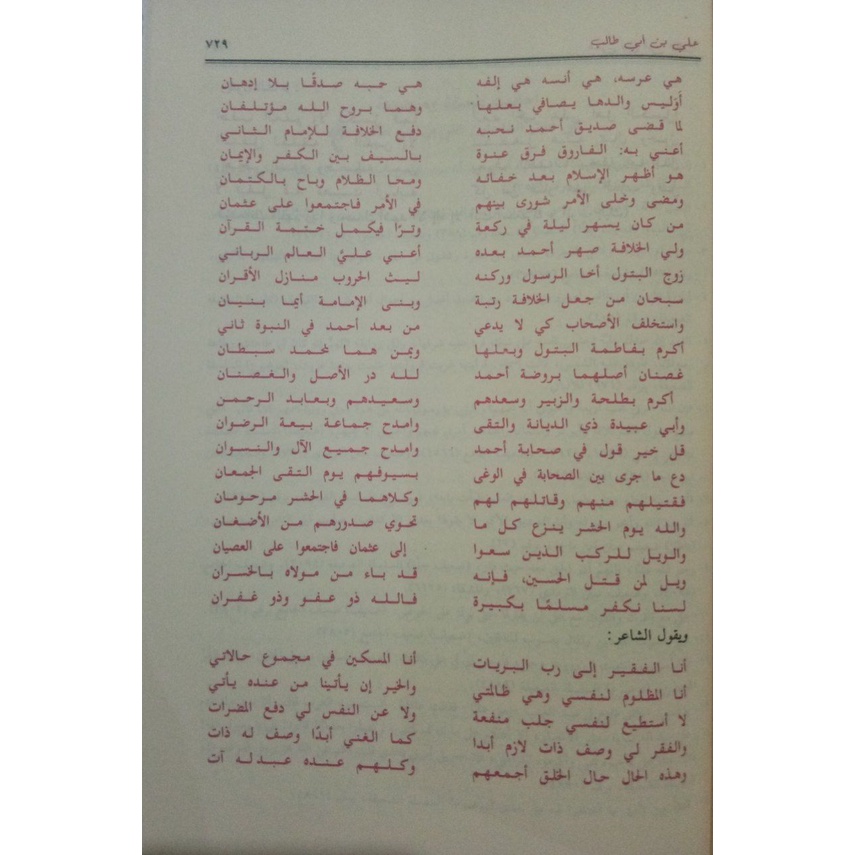 علي بن أبي طالب ٧٢٩
هي عرسه، هي أنسه هي إلفه هي حبه صدقًا بلا إدهان
أوليس والدها يصافي بعلها وهما بروح الله مؤتلفان
لما قضى صديق أحمد نحبه دفع الخلافة للإمام الثاني
أعني به: الفاروق فرق عنوة بالسيف بين الكفر والإيمان
هو أظهر الإسلام بعد خفائه ومحا الظلام وباح بالكتمان
ومضى وخلى الأمر شورى بينهم في الأمر فاجتمعوا على عثمان
من كان يسهر ليلة في ركعة وترًا فيكمل ختمة القرآن
ولي الخلافة صهر أحمد بعده أعني عليّ العالم الرباني
زوج البتول أخا الرسول وركنه ليث الحروب منازل الأقران
سبحان من جعل الخلافة رتبة وبنى الإمامة أيما بنيان
واستخلف الأصحاب كي لا يدعي من بعد أحمد في النبوة ثاني
أكرم بفاطمة البتول وبعلها وبمن هما لمحمد سبطان
غصنان أصلهما بروضة أحمد لله در الأصل والغصنان
أكرم بطلحة والزبير وسعدهم وسعيدهم وبعابد الرحمن
وأبي عبيدة ذي الديانة والتقى وامدح جماعة بيعة الرضوان
قل خير قول في صحابة أحمد وامدح جميع الآل والنسوان
دع ما جرى بين الصحابة في الوغى بسيوفهم يوم التقى الجمعان
فقتيلهم منهم وقاتلهم لهم وكلاهما في الحشر مرحومان
والله يوم الحشر ينزع كل ما تحوي صدورهم من الأضغان
والويل للركب الذين سعوا إلى عثمان فاجتمعوا على العصيان
ويل لمن قتل الحسين، فإنه قد باء من مولاه بالخسران
لسنا نكفر مسلمًا بكبيرة فالله ذو عفو وذو غفران
ويقول الشاعر:
أنا الفقير إلى رب البريات أنا المسكين في مجموع حالاتي
أنا المظلوم لنفسي وهي ظالمتي والخير إن يأتينا من عنده يأتي
لا أستطيع لنفسي جلب منفعة ولا عن النفس لي دفع المضرات
والفقر لي وصف ذات لازم أبدا كما الغني أبدًا وصف له ذات
وهذه الحال حال الخلق أجمعهم وكلهم عنده عبد له آت